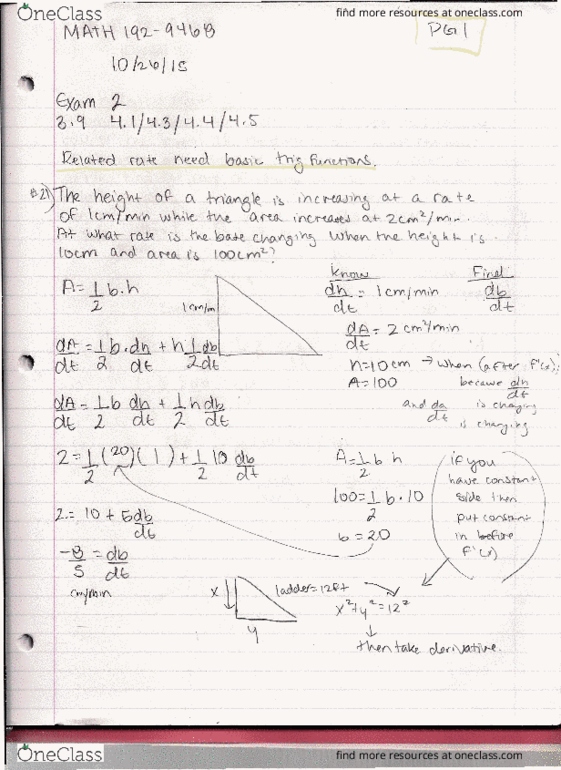 OneClass
find more resources at oneclass.com
MATH 192-946B
PG 1
10/26/15
Exam 2
3.9 4.1/4.3/4.4/4.5
Related rate need basic trig functions.
#21) The height of a triangle is increasing at a rate
of 1cm/min while the area increases at 2cm²/min.
At what rate is the base changing when the height is
10cm and area is 100cm²?
A = 1/2 b·h
1cm/m
know
dh/dt = 1cm/min
Find
db/dt
dA/dt = 2 cm²/min
dA/dt = 1/2 b · dh/dt + h 1/2 db/dt
h=10cm → when (after f'(x))
A=100
because dh/dt
is changing
and da/dt
is changing
dA/dt = 1/2 b dh/dt + 1/2 h db/dt
2 = 1/2 (20)(1) + 1/2 10 db/dt
A = 1/2 b h
100 = 1/2 b · 10
b = 20
if you
have constant
side then
put constant
in before
f'(x)
2 = 10 + 5 db/dt
-8/5 = db/dt
cm/min
x
y
ladder=12ft
x²+y²=12²
then take derivative.
OneClass
find more resources at oneclass.com